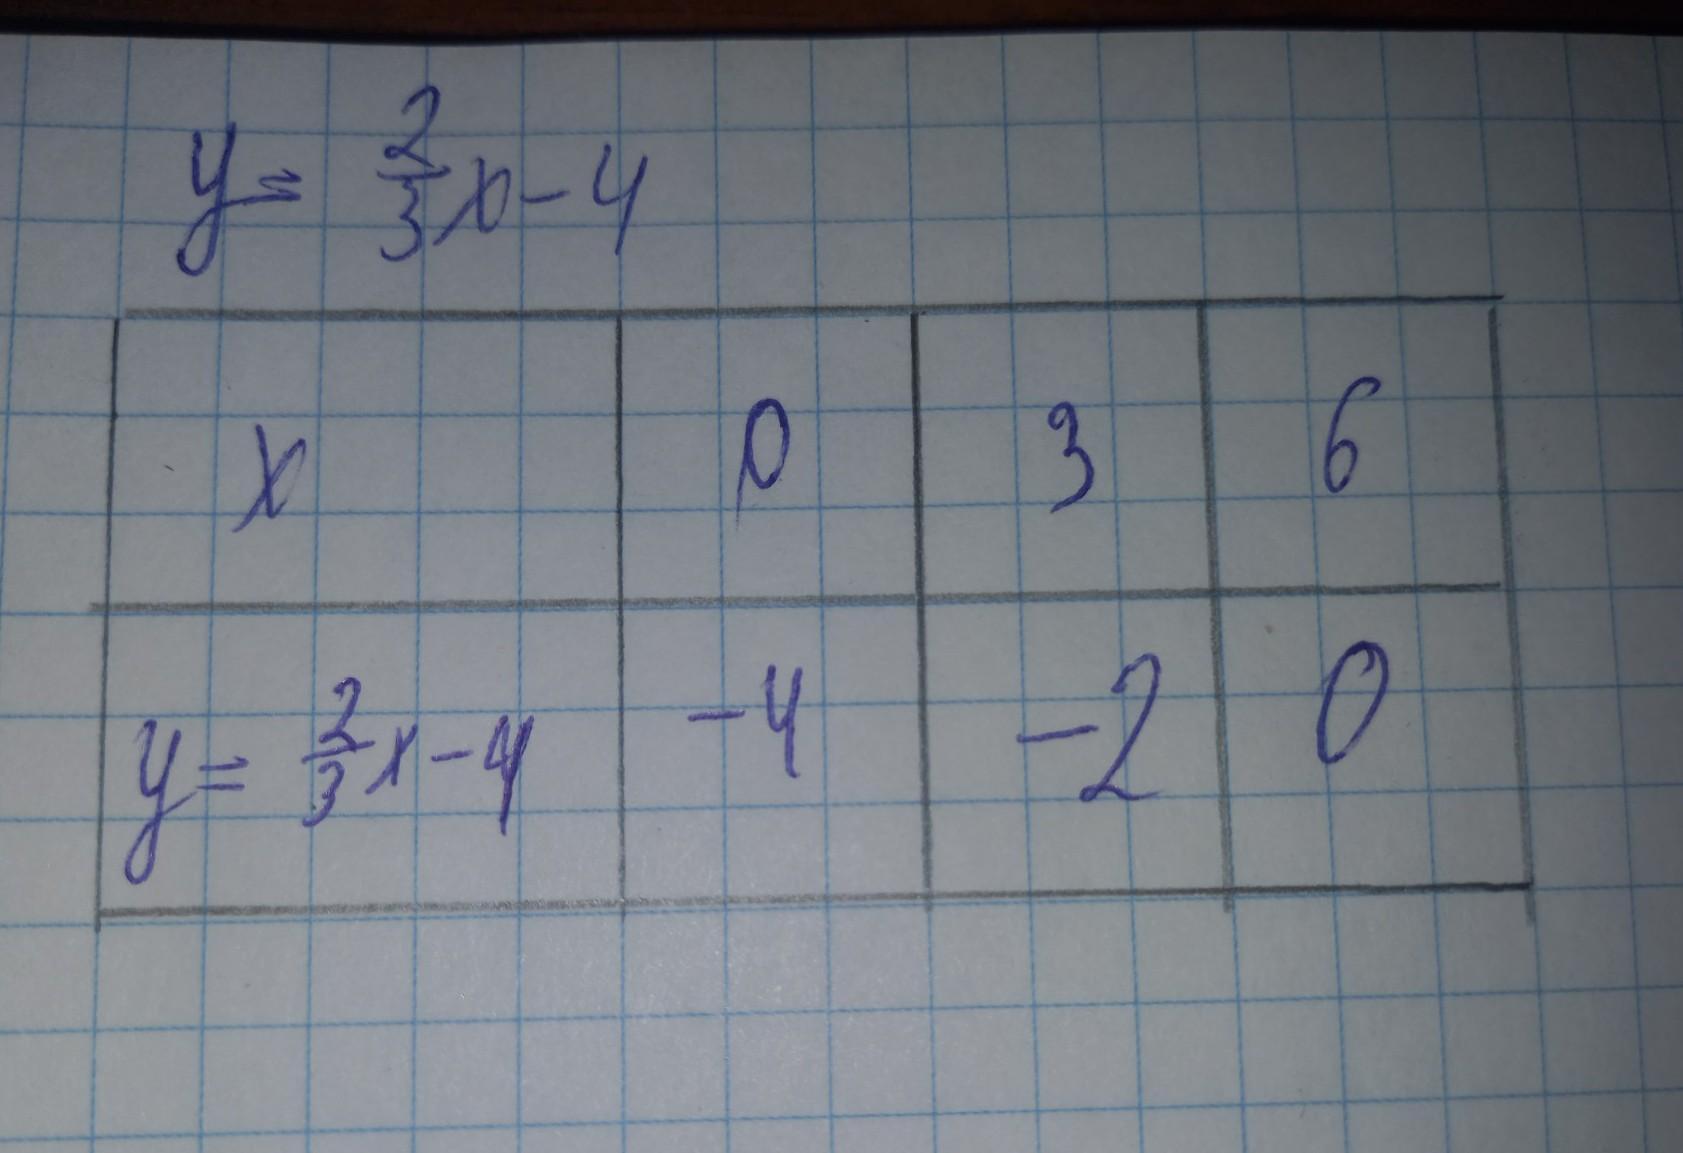 y = 2/3 x - 4
x 0 3 6
y = 2/3 x - 4 -4 -2 0